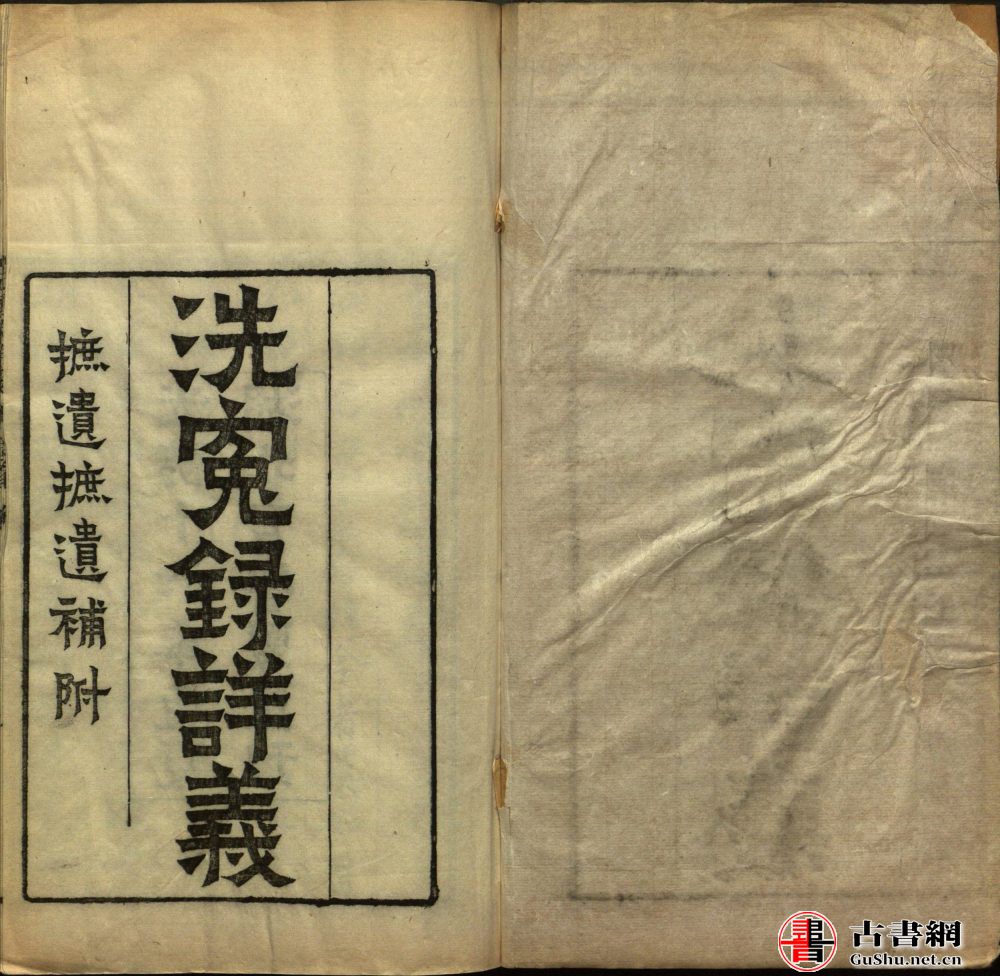 洗寃録詳義
摭遺摭遺補附
書
古書網
GuShu.net.cn